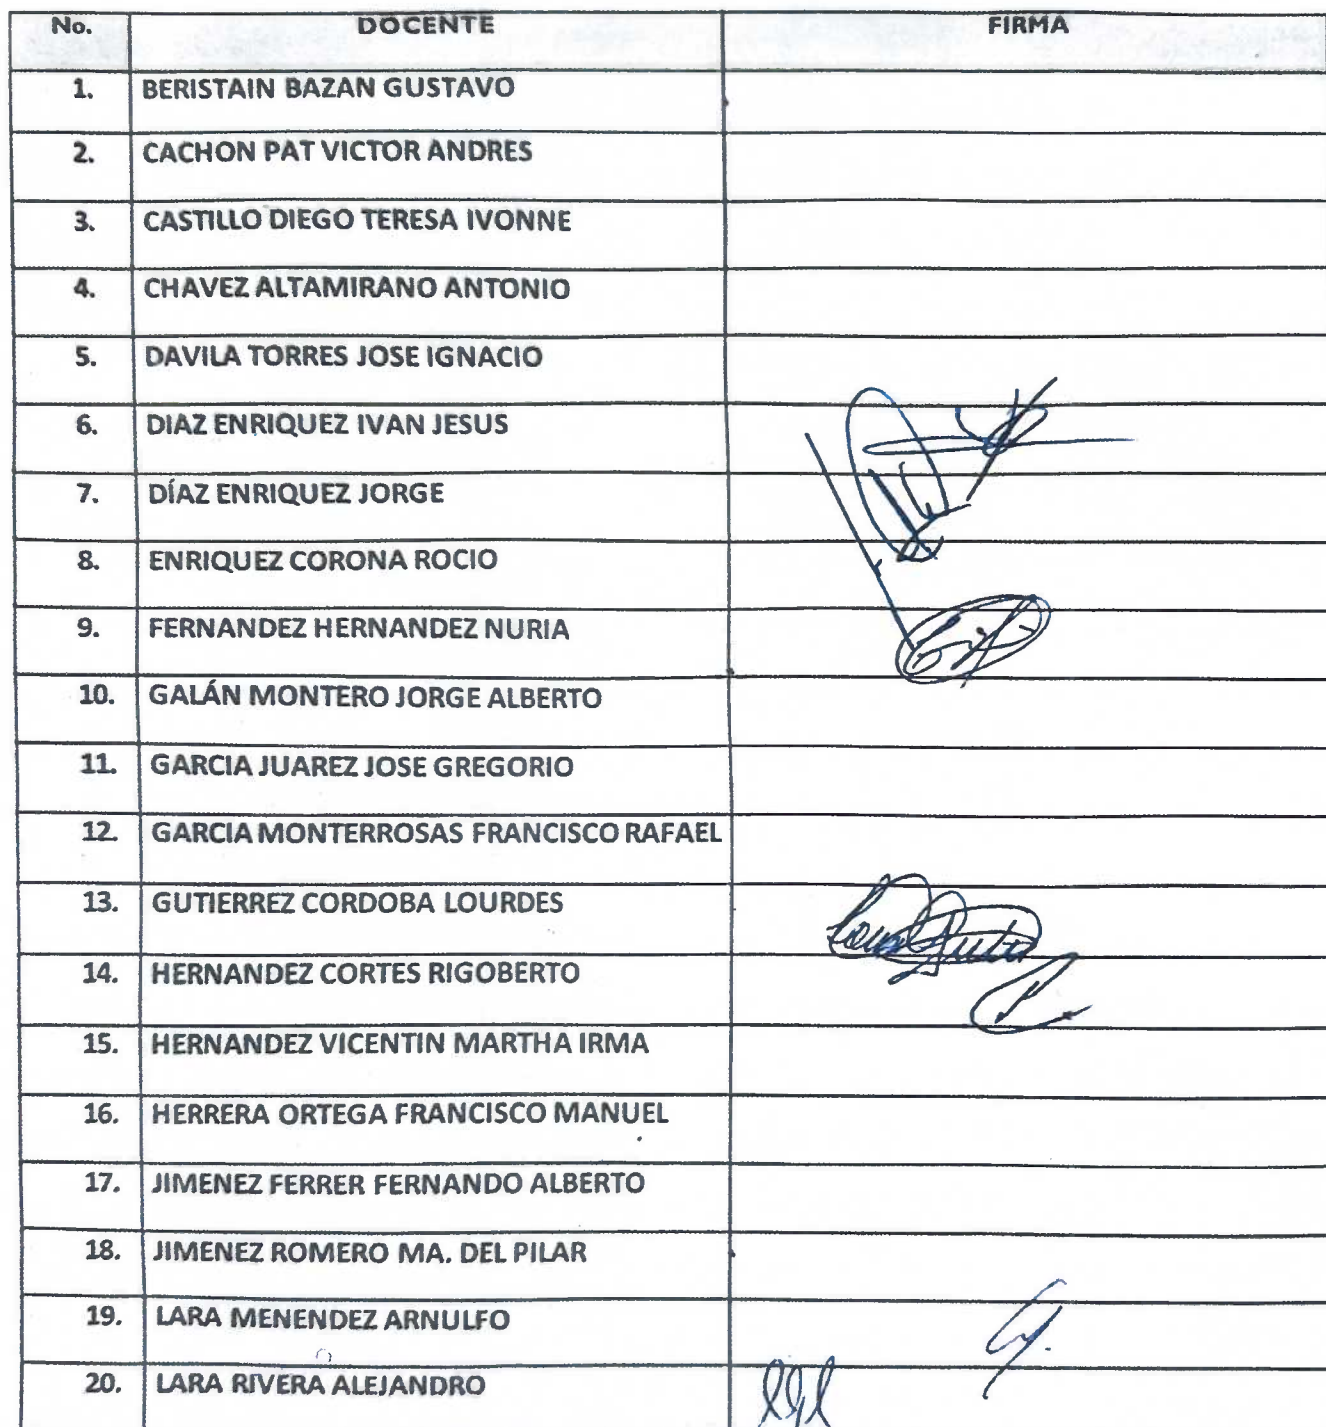 No. DOCENTE FIRMA
1. BERISTAIN BAZAN GUSTAVO
2. CACHON PAT VICTOR ANDRES
3. CASTILLO DIEGO TERESA IVONNE
4. CHAVEZ ALTAMIRANO ANTONIO
5. DAVILA TORRES JOSE IGNACIO
6. DIAZ ENRIQUEZ IVAN JESUS
7. DÍAZ ENRIQUEZ JORGE
8. ENRIQUEZ CORONA ROCIO
9. FERNANDEZ HERNANDEZ NURIA
10. GALÁN MONTERO JORGE ALBERTO
11. GARCIA JUAREZ JOSE GREGORIO
12. GARCIA MONTERROSAS FRANCISCO RAFAEL
13. GUTIERREZ CORDOBA LOURDES
14. HERNANDEZ CORTES RIGOBERTO
15. HERNANDEZ VICENTIN MARTHA IRMA
16. HERRERA ORTEGA FRANCISCO MANUEL
17. JIMENEZ FERRER FERNANDO ALBERTO
18. JIMENEZ ROMERO MA. DEL PILAR
19. LARA MENENDEZ ARNULFO
20. LARA RIVERA ALEJANDRO